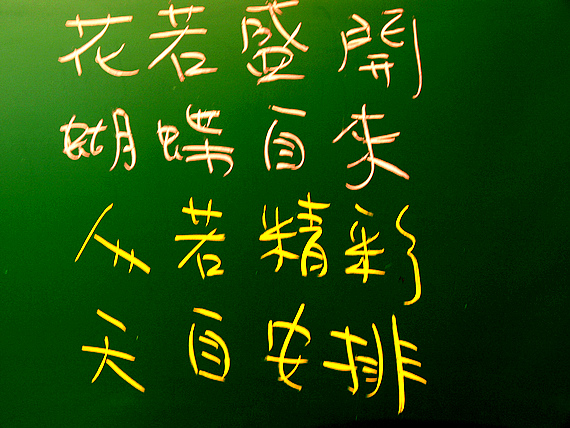 花若盛開
蝴蝶自來
人若精彩
天自安排